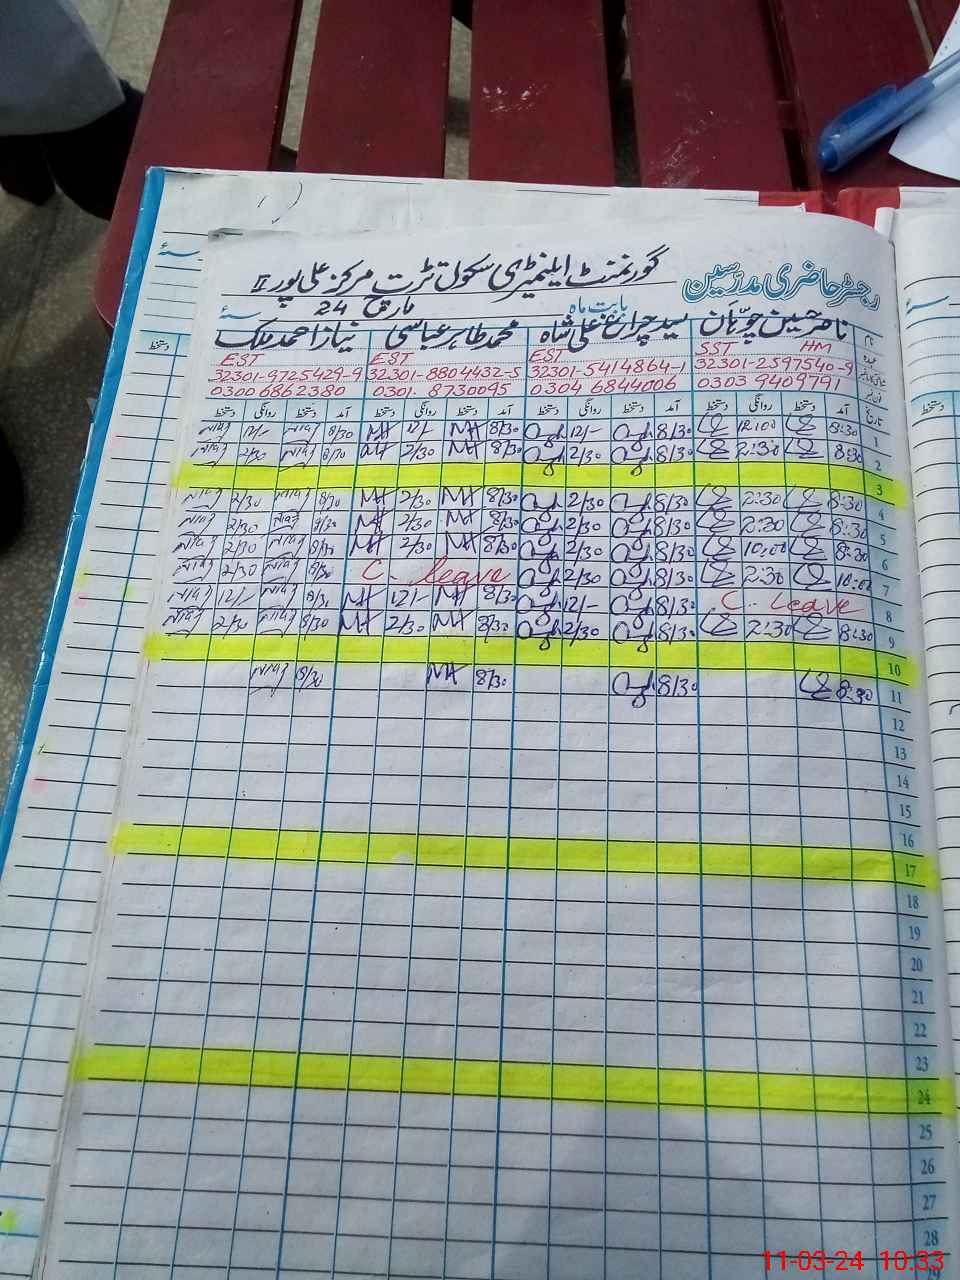 رجسٹر حاضری مدرسین
گورنمنٹ ایلیمنٹری سکول تڑت مرکز علی پور II
بابت ماہ مارچ 24 سنہ
نام ناصر حسین چوہان سید چراغ علی شاہ محمد طاہر عباسی نیاز احمد ملک
عہدہ SST HM EST EST EST
32301-2597540-9 32301-5414864-1 32301-8804432-5 32301-9725429-9
0303 9409791 0304 6844006 0301. 8730095 0300 6862380
تاریخ آمد دستخط روانگی دستخط آمد دستخط روانگی دستخط آمد دستخط روانگی دستخط آمد دستخط روانگی دستخط دستخط
1 8:30 12:00 8/30 12/- 8/30 12/- 8/30 نیاز 12/- نیاز
2 8:30 2:30 8/30 2/30 8/30 2/30 8/30 نیاز 2/30 نیاز
3
4 8:30 2:30 8/30 2/30 8/30 2/30 8/30 نیاز 2/30 نیاز
5 8:30 2:30 8/30 2/30 8/30 2/30 8/30 نیاز 2/30 نیاز
6 8:30 10:00 8/30 2/30 8/30 2/30 8/30 نیاز 2/30 نیاز
7 10:00 2:30 8/30 2/30 C. leave 8/30 نیاز 2/30 نیاز
8 C. leave 8/30 12/- 8/30 12/- 8/30 نیاز 12/- نیاز
9 8:30 2:30 8/30 2/30 8/30 2/30 8/30 نیاز 2/30 نیاز
10
11 8:30 8/30 8/30 8/30 نیاز
12
13
14
15
16
17
18
19
20
21
22
23
24
25
26
27
28
11-03-24 10:33